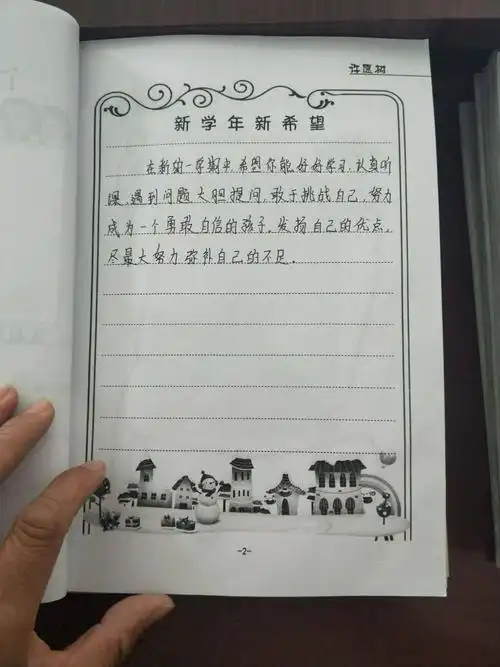 许愿树
新学年新希望
在新的一学期中,希望你能好好学习,认真听
课,遇到问题大胆提问,敢于挑战自己,努力
成为一个勇敢自信的孩子,发扬自己的优点,
尽最大努力弥补自己的不足.
-2-